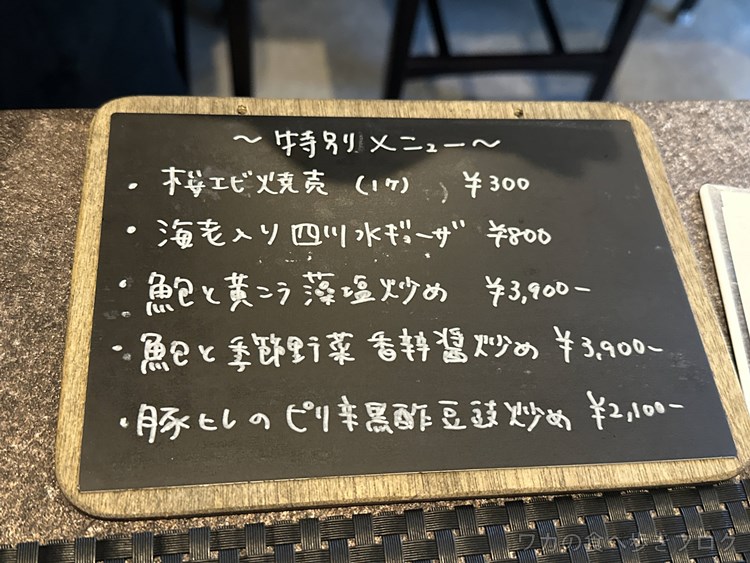 ～特別メニュー～
・桜エビ焼売 (1ヶ) ¥300
・海老入り四川水ギョーザ ¥800
・鮑と黄ニラ藻塩炒め ¥3,900-
・鮑と季節野菜 香辣醤炒め ¥3,900-
・豚ヒレのピリ辛黒酢豆豉炒め ¥2,100-
ワカの食べ歩きブログ